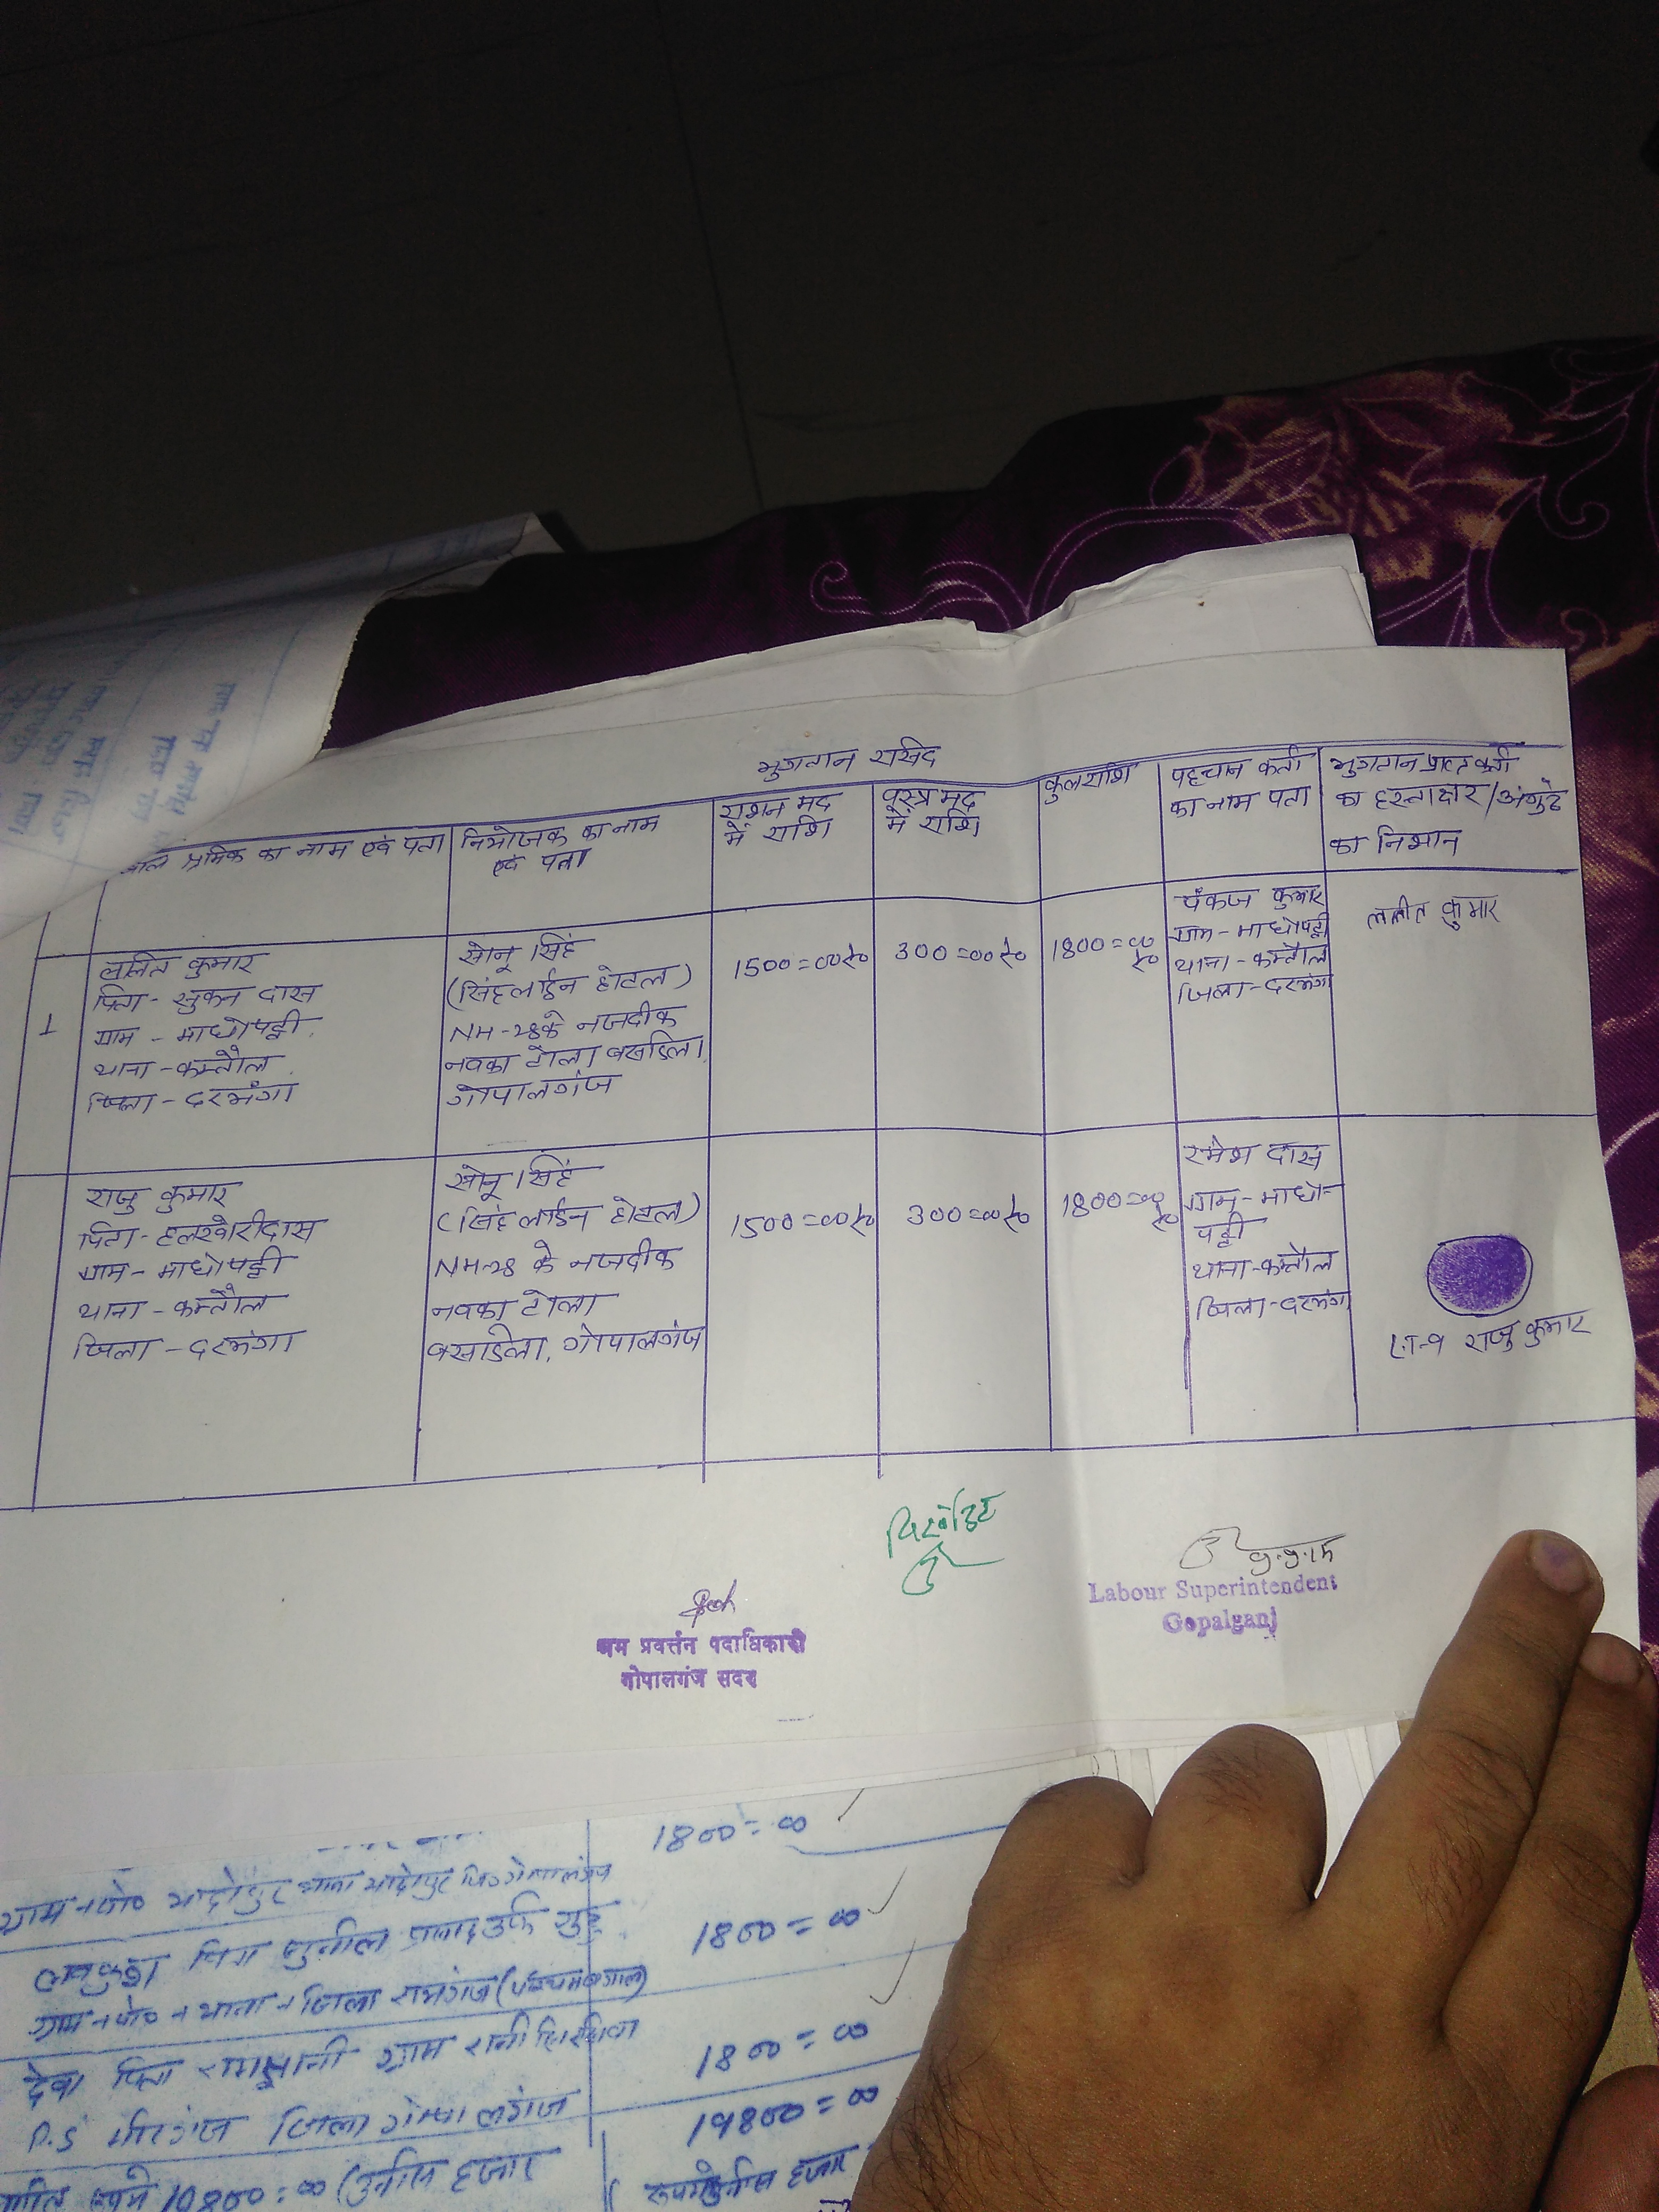 भुगतान रसीद
श्रमिक का नाम एवं पता
नियोजक का नाम
एवं पता
राशन मद
में राशि
वस्त्र मद
में राशि
कुल राशि
पहचान कर्ता
का नाम पता
भुगतान प्राप्त कर्ता
का हस्ताक्षर/अंगुठे
का निशान
1
ललित कुमार
पिता- सुकन दास
ग्राम - माधोपट्टी
थाना - कमतौल
जिला - दरभंगा
सोनू सिंह
(सिंह लाईन होटल)
NH-28 के नजदीक
नवका टोला बसडिला,
गोपालगंज
1500=00रु०
300=00रु०
1800=00
रु०
पंकज कुमार
ग्राम- माधोपट्टी
थाना- कमतौल
जिला- दरभंगा
ललीत कुमार
राजु कुमार
पिता- हलखोरीदास
ग्राम- माधोपट्टी
थाना - कमतौल
जिला - दरभंगा
सोनू सिंह
(सिंह लाईन होटल)
NH-28 के नजदीक
नवका टोला
बसडिला, गोपालगंज
1500=00रु०
300=00रु०
1800=00
रु०
रमेश दास
ग्राम- माधो-
पट्टी
थाना- कमतौल
जिला- दरभंगा
राजु कुमार
श्रम प्रवर्त्तन पदाधिकारी
गोपालगंज सदर
Labour Superintendent
Gopalganj
1800=00
ग्राम
पिता सुनील प्रसाद उर्फ
1800=00
ग्राम+पो०+थाना+जिला
देवा पिता ग्राम
1800=00
P.S मीरगंज जिला गोपालगंज
19800=00
हजार
हजार